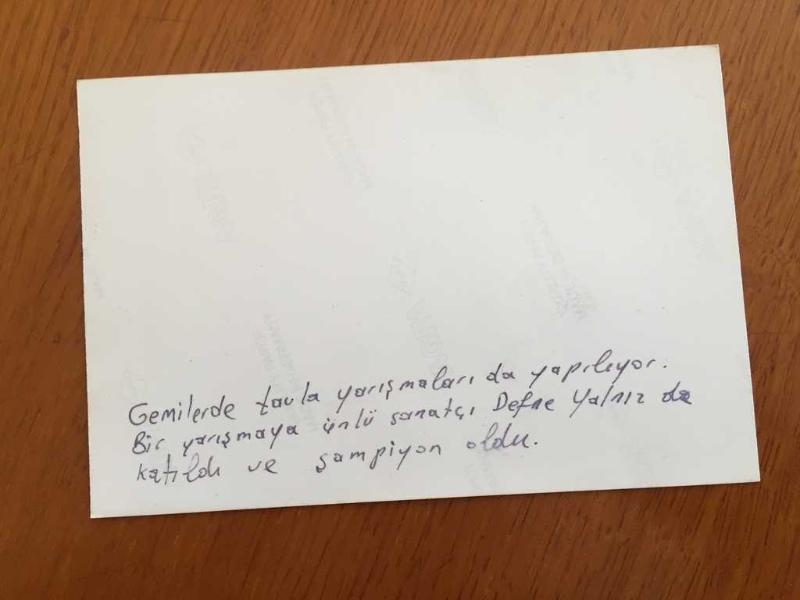 Gemilerde tavla yarışmaları da yapılıyor.
Bir yarışmaya ünlü sanatçı Defne Yalnız da
katıldı ve şampiyon oldu.